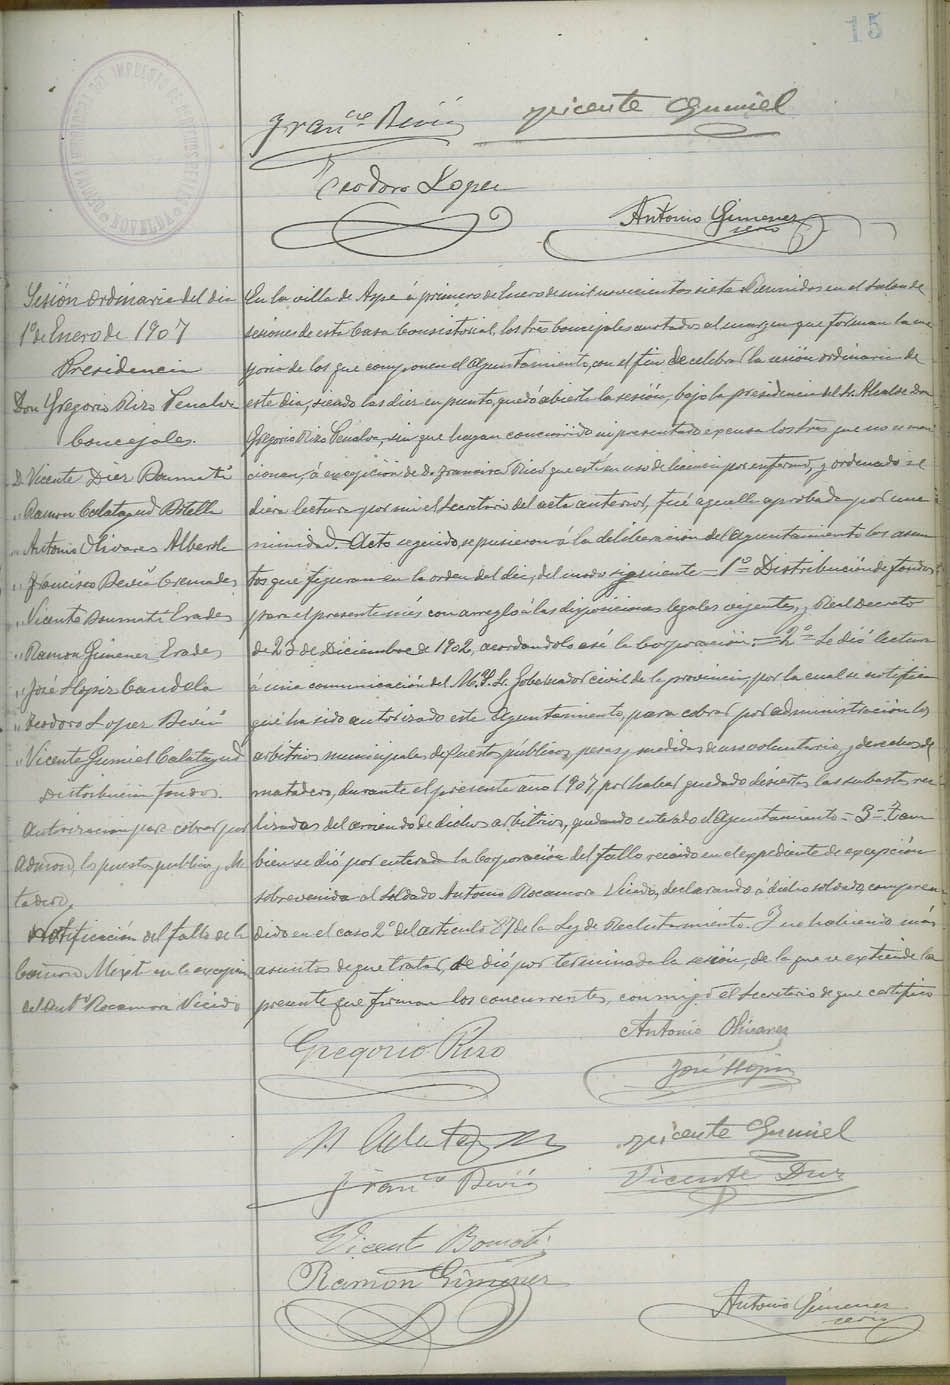 15
Fran.co Beviá
Vicente Gumiel
Teodoro Lopez
Antonio Gimenez
serio
Sesión ordinaria del dia
1º de Enero de 1907
Presidencia
Don Gregorio Rizo Penalva
Concejales.
D. Vicente Diez Boumatí
" Ramon Calatayud Botella
" Antonio Olivares Alberola
" Francisco Beviá Cremades
" Vicente Boumatí Erades
" Ramon Gimenez Erades
" José Llopiz Candela
" Teodoro Lopez Beviá
" Vicente Gumiel Calatayud
Distribucion fondos.
Autorizacion para cobrar por
admón los puestos publicos y Ma
tadero,
Notificación del fallo de la
Comisión Mixta en la excepcion
del Antº Rocamora Vicedo
En la villa de Aspe á primero de Enero de mil novecientos siete Reunidos en el Salon de
sesiones de esta Casa Consistorial, los Sres Concejales anotados al margen que forman la ma
yoria de los que componen el Ayuntamiento, con el fin de celebrar la sesión ordinaria de
este dia, siendo las diez en punto, quedó abierta la sesión, bajo la presidencia del Sr. Alcalde Don
Gregorio Rizo Penalva, sin que hayan concurrido ni presentado excusa los Sres que no se men
cionan, á excepcion de D. Francisco Picó que está en uso de licencia por enfermo, y ordenado se
diera lectura por mi el Secretario del acta anterior, fué aquella aprobada por una
nimidad. Acto seguido, se pusieron á la deliberación del Ayuntamiento los asun
tos que figuran en la orden del dia, del modo siguiente = 1º = Distribución de fondos
para el presente mes con arreglo á las disposiciones legales vigentes, y Real Decreto
de 23 de Diciembre de 1902, acordandolo asi la Corporación. = 2º = Se dió lectura
á una comunicación del M. Y. Sr. Gobernador civil de la provincia, por la cual se notifica
que ha sido autorizado este Ayuntamiento, para cobrar por administracion los
arbitrios municipales de Puestos públicos, pesas y medidas de uso voluntario, y derechos de
matadero, durante el presente año 1907 por haber quedado desiertas las subastas rea
lizadas del arriendo de dichos arbitrios, quedando enterado el Ayuntamiento = 3 = Tam
bien se dió por enterada la Corporación del fallo recaido en el expediente de excepción
sobrevenida al soldado Antonio Rocamora Vicedo, declarando á dicho soldado, compren
dido en el caso 2º del articulo 87 de la Ley de Reclutamiento. Y no habiendo más
asuntos de que tratar, se dió por terminada la sesión, de la que se extiende la
presente que firman los concurrentes, conmigo el Secretario de que certifico
Gregorio Rizo
Antonio Olivares
José Llopiz
R Calatayud
Vicente Gumiel
Fran.co Beviá
Vicente Diez
Vicente Bomatí
Ramón Gimenez
Antonio Gimenez
serio